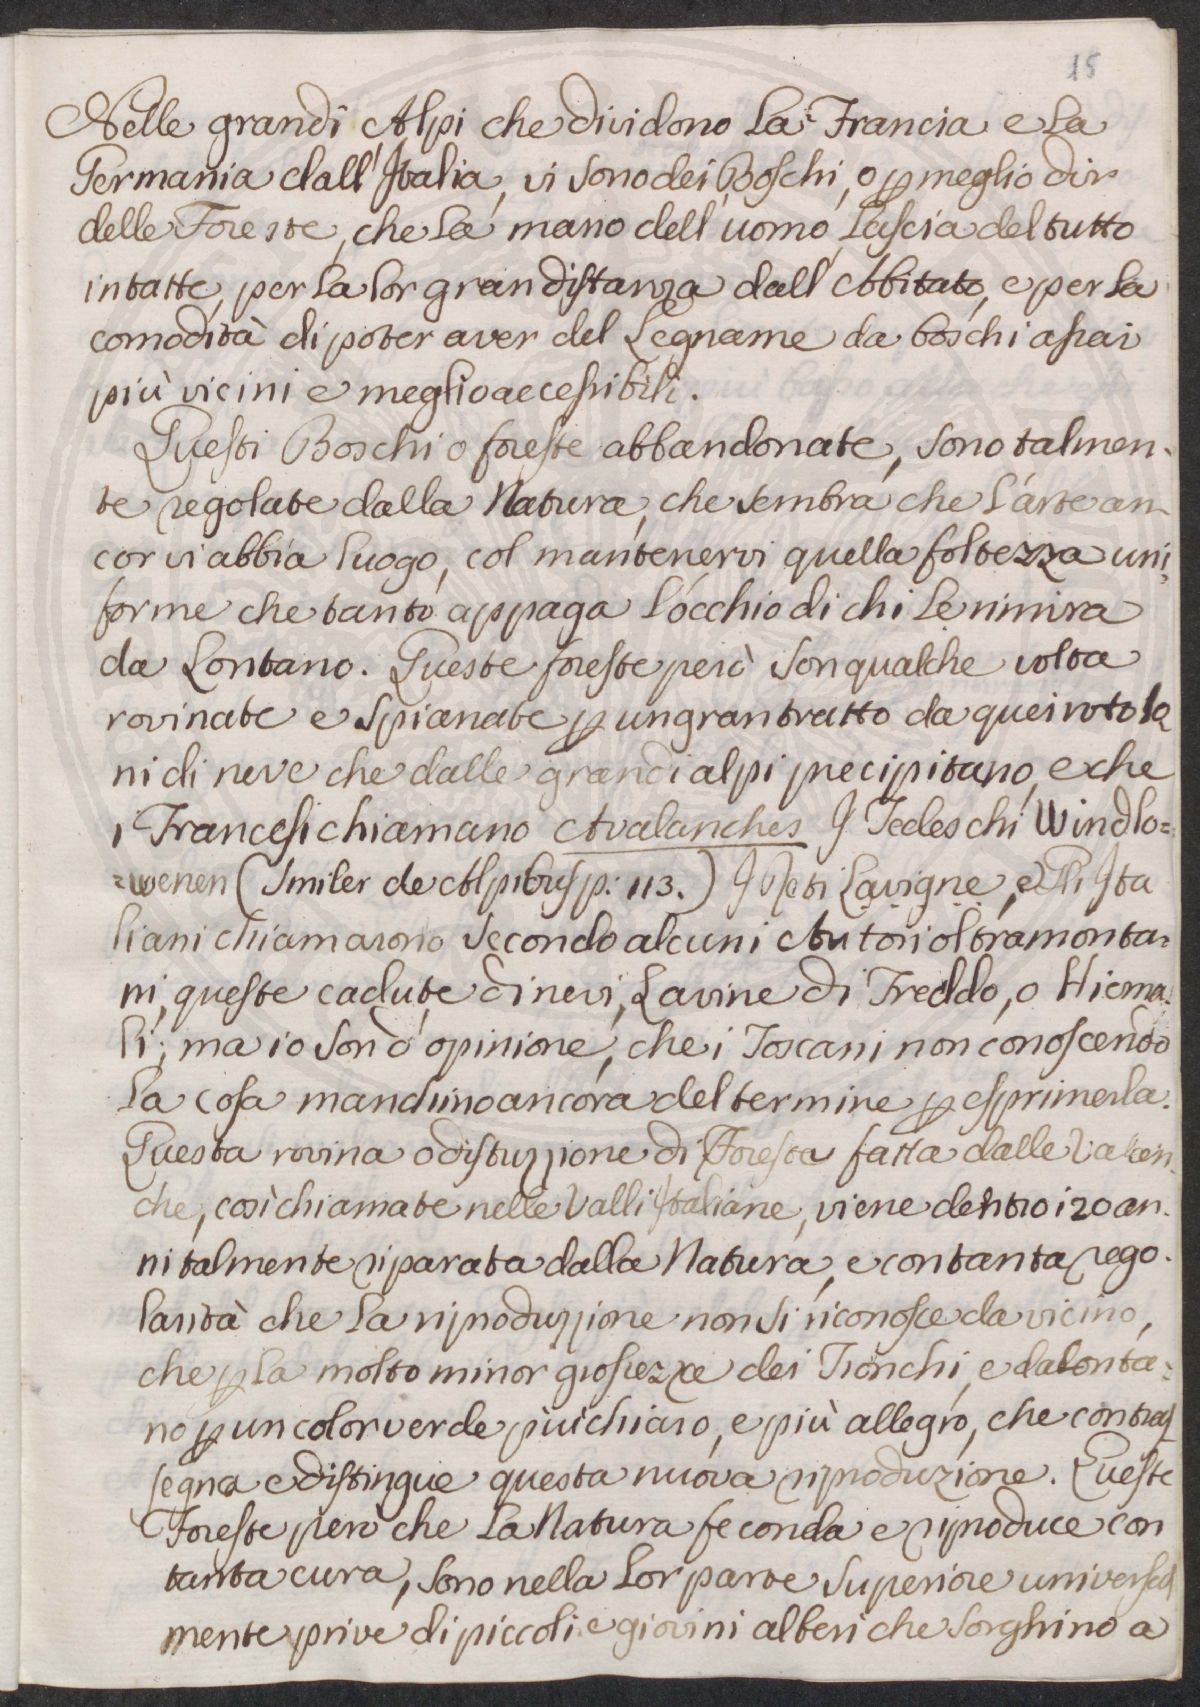 15
Nelle grandi Alpi che dividono la Francia e la
Germania dall'Italia, vi sono dei Boschi, o p meglio dir
delle Foreste, che la mano dell'uomo lascia del tutto
intatte, per la lor gran distanza dall'Abitato, e per la
comodità di poter aver del Legname da boschi assai
più vicini e meglio accessibili.
Questi Boschi o foreste abbandonate, sono talmen-
te regolate dalla Natura, che sembra che l'arte an-
cor vi abbia luogo, col mantenervi quella foltezza uni
forme che tanto appaga l'occhio di chi le rimira
da Lontano. Queste foreste però son qualche volta
rovinate e spianate p un gran tratto da quei rotolo
ni di neve che dalle grandi alpi precipitano, e che
i Francesi chiamano Avalanches I Tedeschi Windlo=
=wenen (Smiler de Alpibus p: 113.) I Reti Lavigne, e Gli Ita
liani chiamarono secondo alcuni Autori oltramonta=
ni, queste cadute di nevi, Lavine di Freddo, o Hiema
li; ma io son d'opinione, che i Toscani non conoscendo
la cosa manchino ancora del termine p esprimerla.
Questa rovina o distruzzione di Foresta fatta dalle Valan
che, così chiamate nelle Valli Italiane, viene dentro i 20 an-
ni talmente riparata dalla Natura, e con tanta rego-
larità che la riproduzzione non si riconosce da vicino,
che p la molto minor grossezza dei Tronchi, e da lonta=
no p un color verde più chiaro, e più allegro, che contras
segna e distingue questa nuova riproduzione. Queste
Foreste però che la Natura feconda e riproduce con
tanta cura, sono nella lor parte superiore universal
mente prive di piccoli e giovini alberi che sorghino a